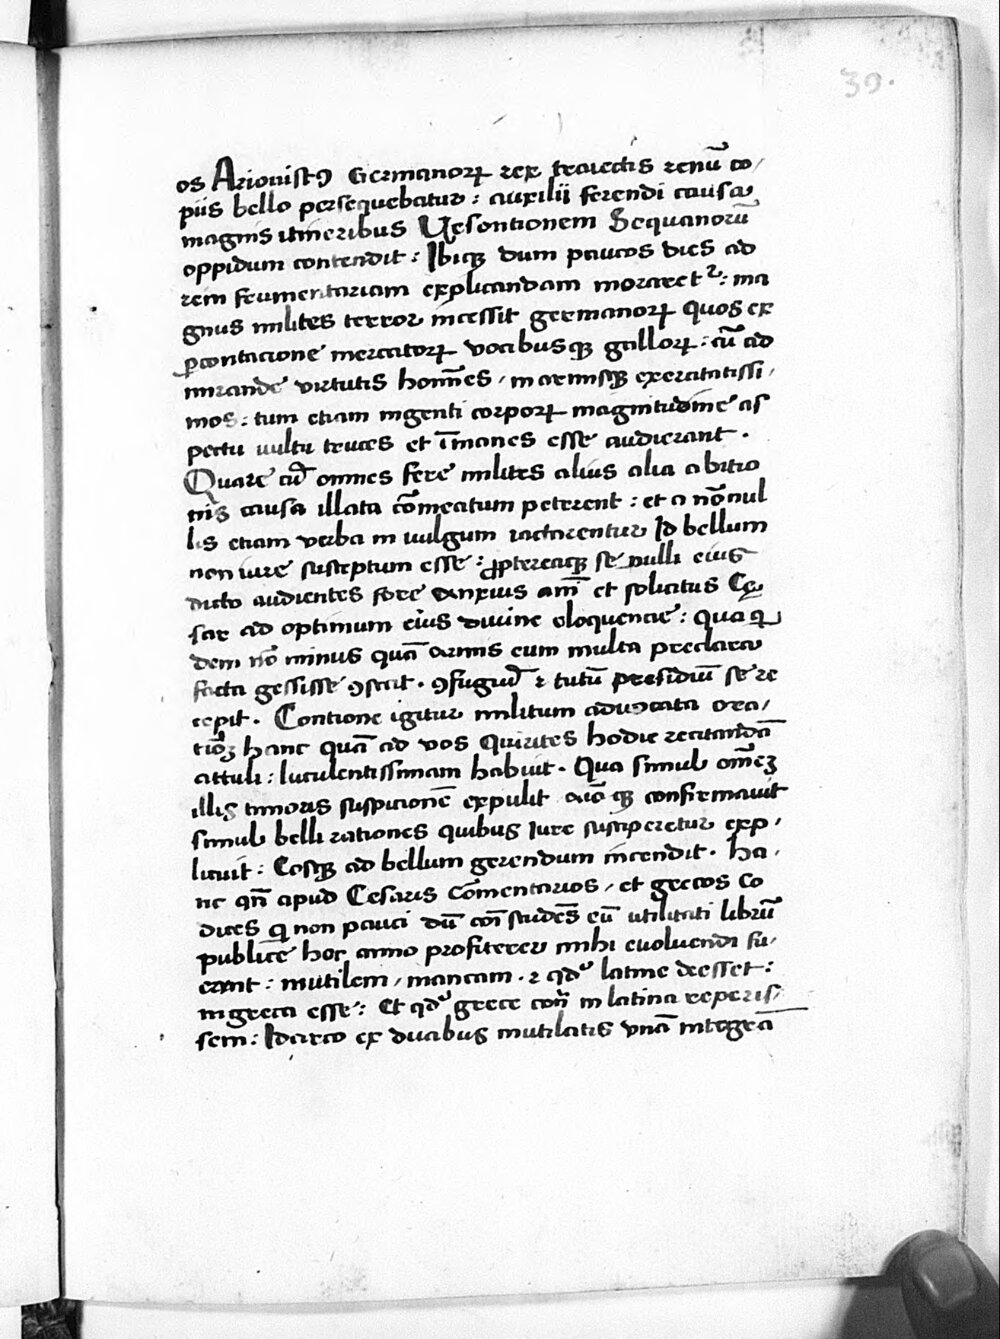 39.
os Arionistꝯ Germanorꝝ rex traiectis renū co/
piis bello persequebatur : auxilii ferendi causa
magnis itineribus Vesontionem Sequanorū
oppidum contendit : Ibiqꝫ dum paucos dies ad
rem frumentariam explicandam moraretᷣ : ma
gnus milites terror incessit germanorꝝ quos ex
ꝑcontacione mercatorꝝ vocibusqꝫ gallorꝝ : cū ad
mirande virtutis homīes / in armisqꝫ exercitatissi /
mos : tum etiam ingenti corporꝝ magnitudine as
pectu uultu truces et īmanes esse audierant .
Quare cū omnes fere milites alius alia abitio
nis causa illata cōmeatum peterent : et a nōnul
lis etiam verba in uulgum iactarentur Id bellum
non iure susceptum esse : ꝓptereaqꝫ se nulli eius
dicto audientes fore anxius aīm et solicitus Ce
sar ad optimum eius diuine eloquencie : Qua qͥ
dem nō minus quā armis eum multa preclara
facta gessisse ꝯstat . ꝯfugiū ⁊ tutū presidiū se re
cepit . Contione igitur militum aduocata ora/
tiōꝫ hanc quā ad vos Quirites hodie recitandā
attuli : luculentissimam habuit . Qua simul omēꝫ
illis timoris suspicionē expulit aīoqꝫ confirmauit
simul belli rationes quibus Iure susciperetur exp /
licuit : Eosqꝫ ad bellum gerendum incendit . Ha /
nc qn̄ apud Cesaris cōmentarios / et grecos Co
dices qͥ non pauci dū cōi studēs eū utilitati librū
publice hoc anno profiterer mihi euoluendi fu/
erant : mutilem / mancam . ⁊ qd͛ latine deesset :
in greca esse : Et qd͛ grece cōn̄ in latina reperis/
sem : Idcirco ex duabus mutilatis vnā integrā